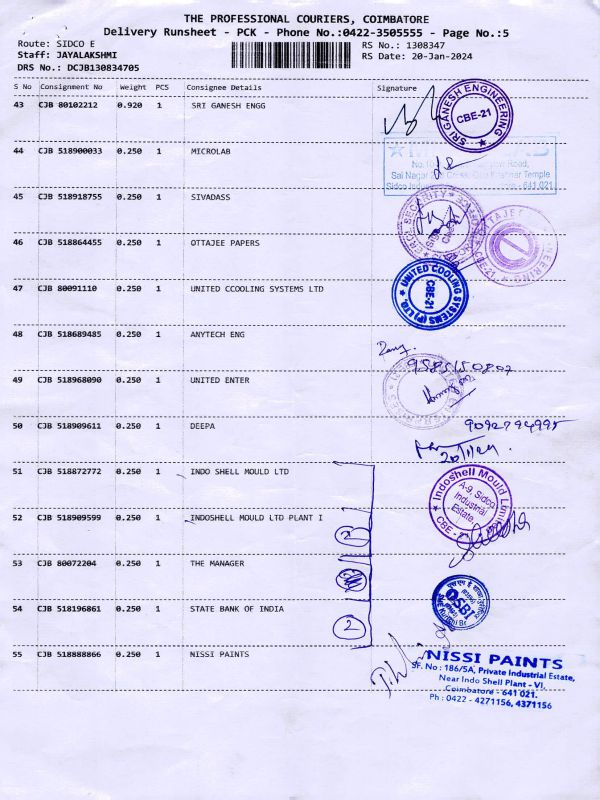 THE PROFESSIONAL COURIERS, COIMBATORE
Delivery Runsheet - PCK - Phone No.:0422-3505555 - Page No.:5
Route: SIDCO E
RS No.: 1308347
Staff: JAYALAKSHMI
RS Date: 20-Jan-2024
DRS No.: DCJB130834705
S No Consignment No Weight PCS Consignee Details Signature
43 CJB 80102212 0.920 1 SRI GANESH ENGG
SRI GANESH ENGINEERING
CBE-21
44 CJB 518900033 0.250 1 MICROLAB
45 CJB 518918755 0.250 1 SIVADASS
46 CJB 518864455 0.250 1 OTTAJEE PAPERS
47 CJB 80091110 0.250 1 UNITED CCOOLING SYSTEMS LTD
UNITED COOLING SYSTEMS (P) LTD
CBE-21
48 CJB 518689485 0.250 1 ANYTECH ENG
49 CJB 518968090 0.250 1 UNITED ENTER
50 CJB 518909611 0.250 1 DEEPA
9092794995
51 CJB 518872772 0.250 1 INDO SHELL MOULD LTD
Indoshell Mould Limited
A-9, Sidco
Industrial
Estate,
52 CJB 518909599 0.250 1 INDOSHELL MOULD LTD PLANT I
53 CJB 80072204 0.250 1 THE MANAGER
54 CJB 518196861 0.250 1 STATE BANK OF INDIA
SBI
2
55 CJB 518888866 0.250 1 NISSI PAINTS
NISSI PAINTS
SF. No : 186/5A, Private Industrial Estate,
Near Indo Shell Plant - VI,
Coimbatore - 641 021.
Ph : 0422 - 4271156, 4371156